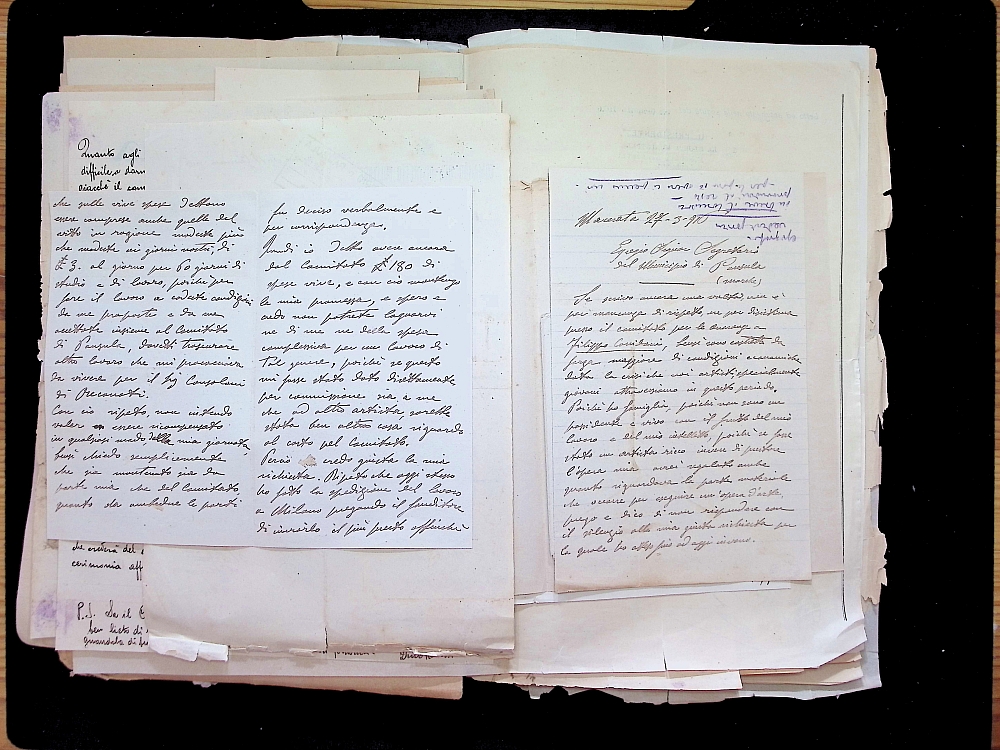 Quanto agli
difficile, o dam
che quelle vive spese dettono
esser comprese anche quelle del
vitto in ragione modesta più
che modesta ai giorni nostri, di
£ 3. al giorno per 60 giorni di
studio e di lavoro, poichè per
fare il lavoro a codeste condizioni
da me proposte e da me
accettate insieme al Comitato
di Pausula, dovetti trascurare
altro lavoro che mi procurava
da vivere per il Sig Consolani
di Recanati.
Con ciò ripeto, non intendo
voler essere ricompensato
in qualsiasi modo della mia giornata,
bensì chiedo semplicemente
che sia mantenuto sia da
parte mia che dal Comitato
quanto da ambedue le parti
che criterà del
cerimonia aff
P.S. Se il C
ben lieto di
fu deciso verbalmente e
per corrispondenza.
Quindi io detto avere ancora
dal Comitato £ 180 di
spese vive, e con ciò mantengo
la mia promessa, e spero e
credo non potrete lagnarvi
ne di me ne della spesa
complessiva per un lavoro di
tal genere, poichè se questo
mi fosse stato dato direttamente
per commissione sia a me
che ad altro artista sarebbe
stata ben altra cosa riguardo
al costo pel Comitato.
Perciò credo giusta la mia
richiesta. Ripeto che oggi stesso
ho fatto la spedizione del lavoro
a Milano pregando il fonditore
di inviarlo il più presto affinchè
Macerata 27-3-911
Egregio Signor Segretario
del Municipio di Pausula
(Marche)
Se scrivo ancora una volta non è
per mancanza di rispetto, ne per disistima
presso il comitato per le onoranze a
Filippo Corridoni, bensì sono costretto da
forza maggiore di condizioni economiche
data la crisi che noi artisti, specialmente
giovani attraversiamo in questo periodo.
Poichè ho famiglia, poichè non sono un
possidente e vivo con il frutto del mio
lavoro e del mio intelletto, poichè se fosse
stato un artista ricco invece di prestare
l'opera mia avrei regalato anche
quanto riguardava la parte materiale
che occorre per eseguire un'opera d'arte,
prego e dico di non rispondere con
il silenzio alla mia giusta richiesta per
la quale ho atteso fino ad oggi invano.